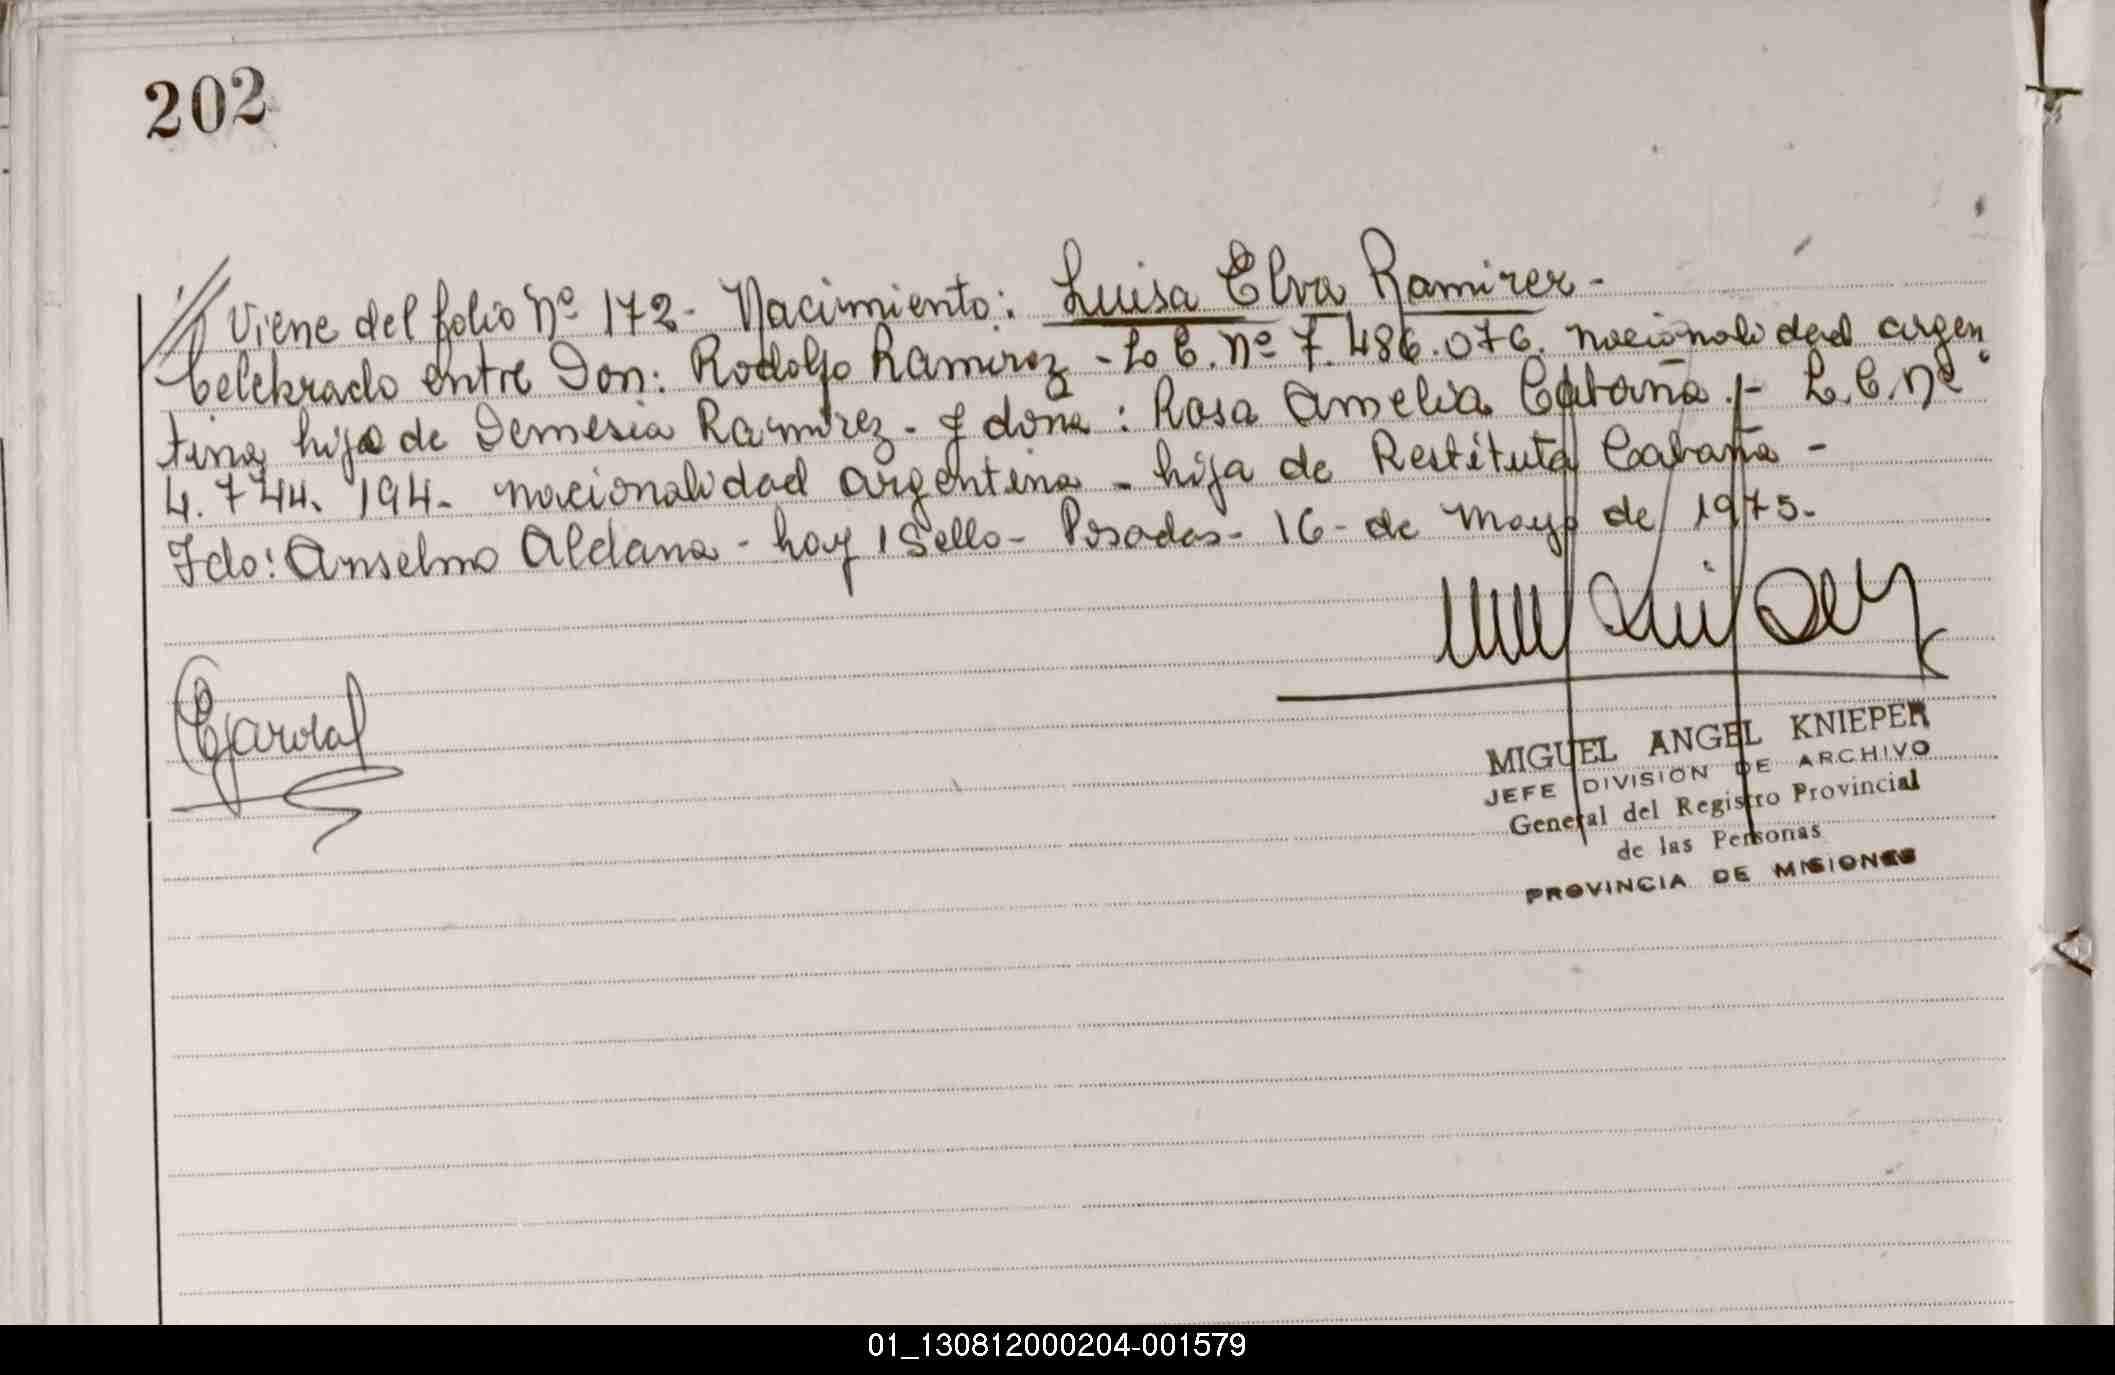 202
Viene del folio Nº 172- Nacimiento: Luisa Elva Ramirez-
Celebrado entre Don: Rodolfo Ramirez - L. E. Nº 7.486.076. nacionalidad argen
tina hijo de Demesia Ramirez - y doña: Rosa Amelia Cabaña.- L.C. Nº
4.744.194- nacionalidad argentina - hija de Restituta Cabaña -
Fdo: Anselmo Aldana - hay 1 Sello- Posadas- 16- de Mayo de 1975-
MIGUEL ANGEL KNIEPER
JEFE DIVISION DE ARCHIVO
General del Registro Provincial
de las Personas
PROVINCIA DE MISIONES
01_130812000204-001579